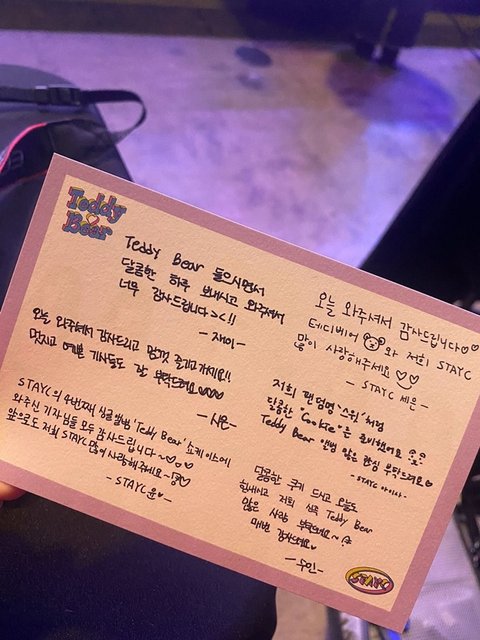 Teddy
Bear
Teddy Bear 들으시면서
달콤한 하루 보내시고 와주셔서
너무 감사드립니다><!!
- 재이 -
오늘 와주셔서 감사드리고 맘껏 즐기고가세요!!
멋지고 예쁜 기사들도 잘 부탁드려요♡♡♡
- 시은 -
STAYC의 4번째 싱글앨범 'Teddy Bear' 쇼케이스에
와주신 기자님들 모두 감사드립니다~♡
앞으로도 저희 STAYC 많이 사랑해주세요~!♡
- STAYC 윤♡ -
오늘 와주셔서 감사합니다♡♡
테디베어 와 저희 STAYC
많이 사랑해주세요♡♡
- STAYC 세은 -
저희 팬덤명 '스윗'처럼
달콤한 "Cookie"를 준비했어요
Teddy Bear 앨범 많은 관심 부탁드려요♡
- STAYC 아이사 -
달콤한 쿠키 드시고 오늘도
힘내시고 저희 신곡 Teddy Bear
많은 사랑 부탁드려요~
매번 감사해요♡
- 수민 -
STAYC